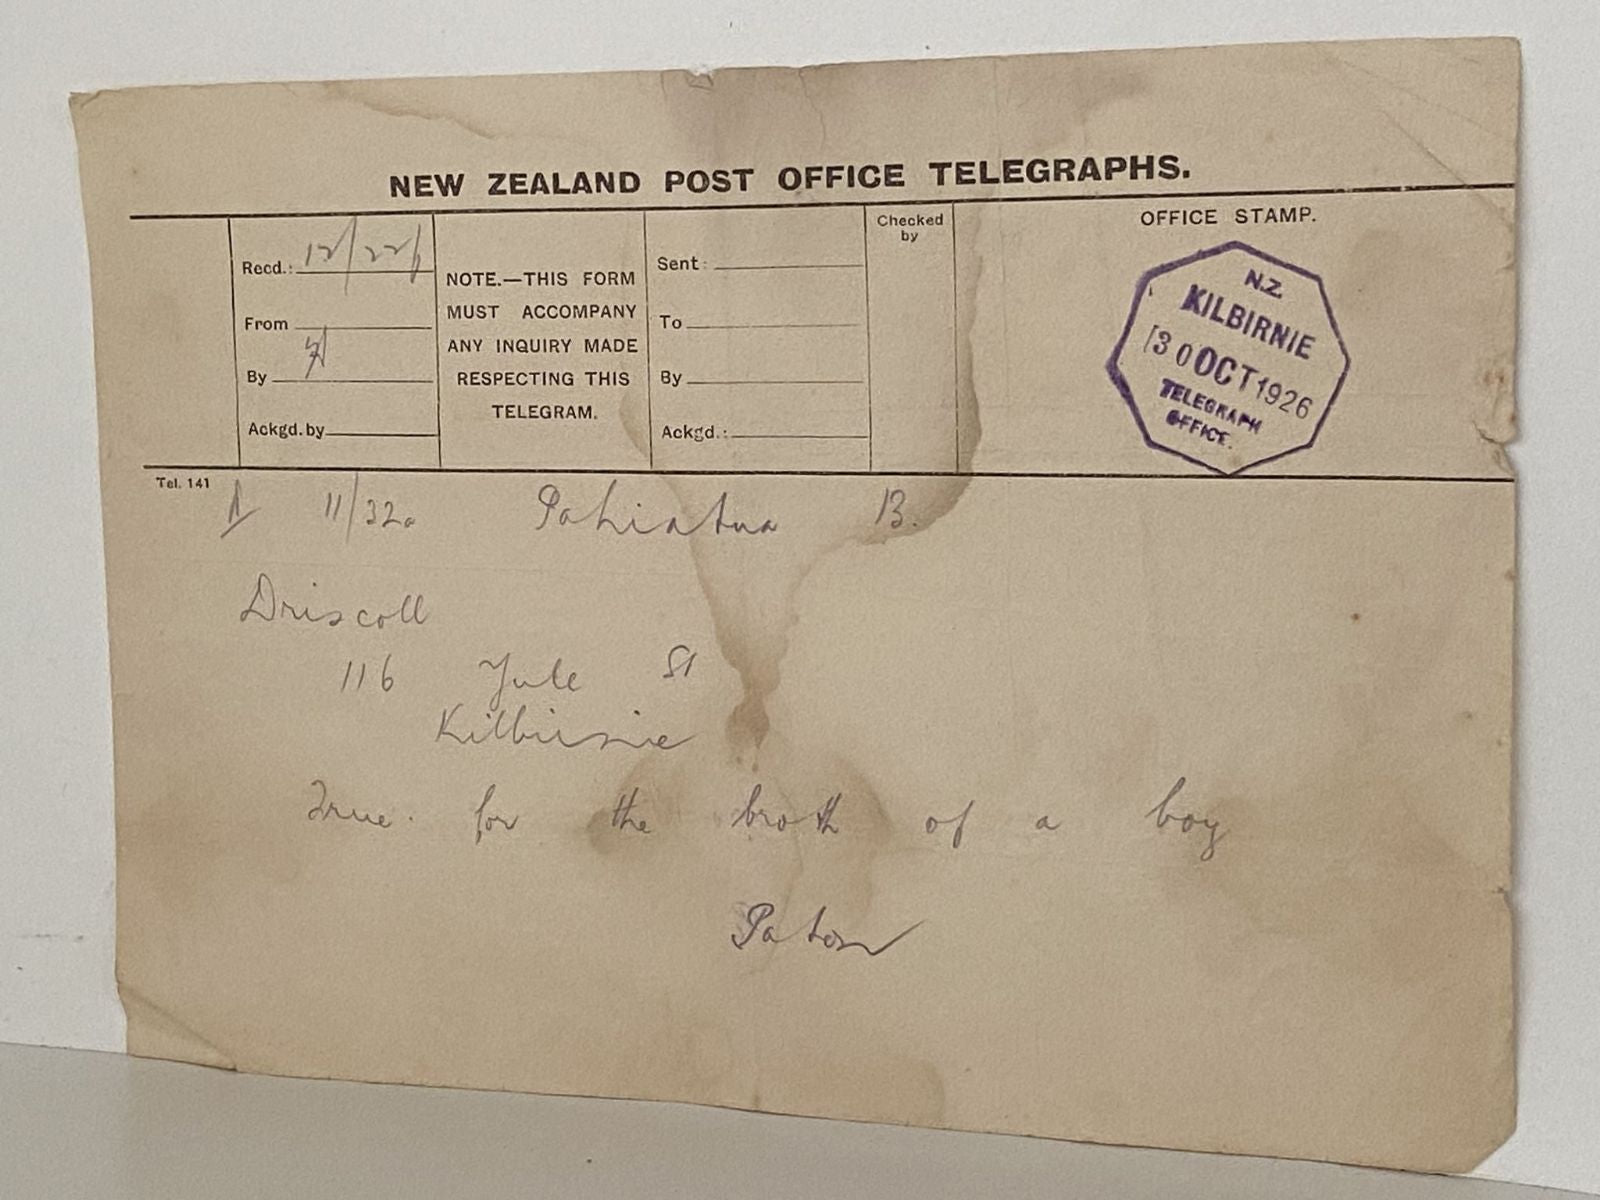 NEW ZEALAND POST OFFICE TELEGRAPHS.
Recd.: 12/22
From
By
Ackgd. by
NOTE.—THIS FORM
MUST ACCOMPANY
ANY INQUIRY MADE
RESPECTING THIS
TELEGRAM.
Sent:
To
By
Ackgd.:
Checked
by
OFFICE STAMP.
N.Z.
KILBIRNIE
30 OCT 1926
TELEGRAPH
OFFICE.
Tel. 141
11/32a Pahiatua B.
Driscoll
116 Yule St
Kilbirnie
True for the broth of a boy
Paton